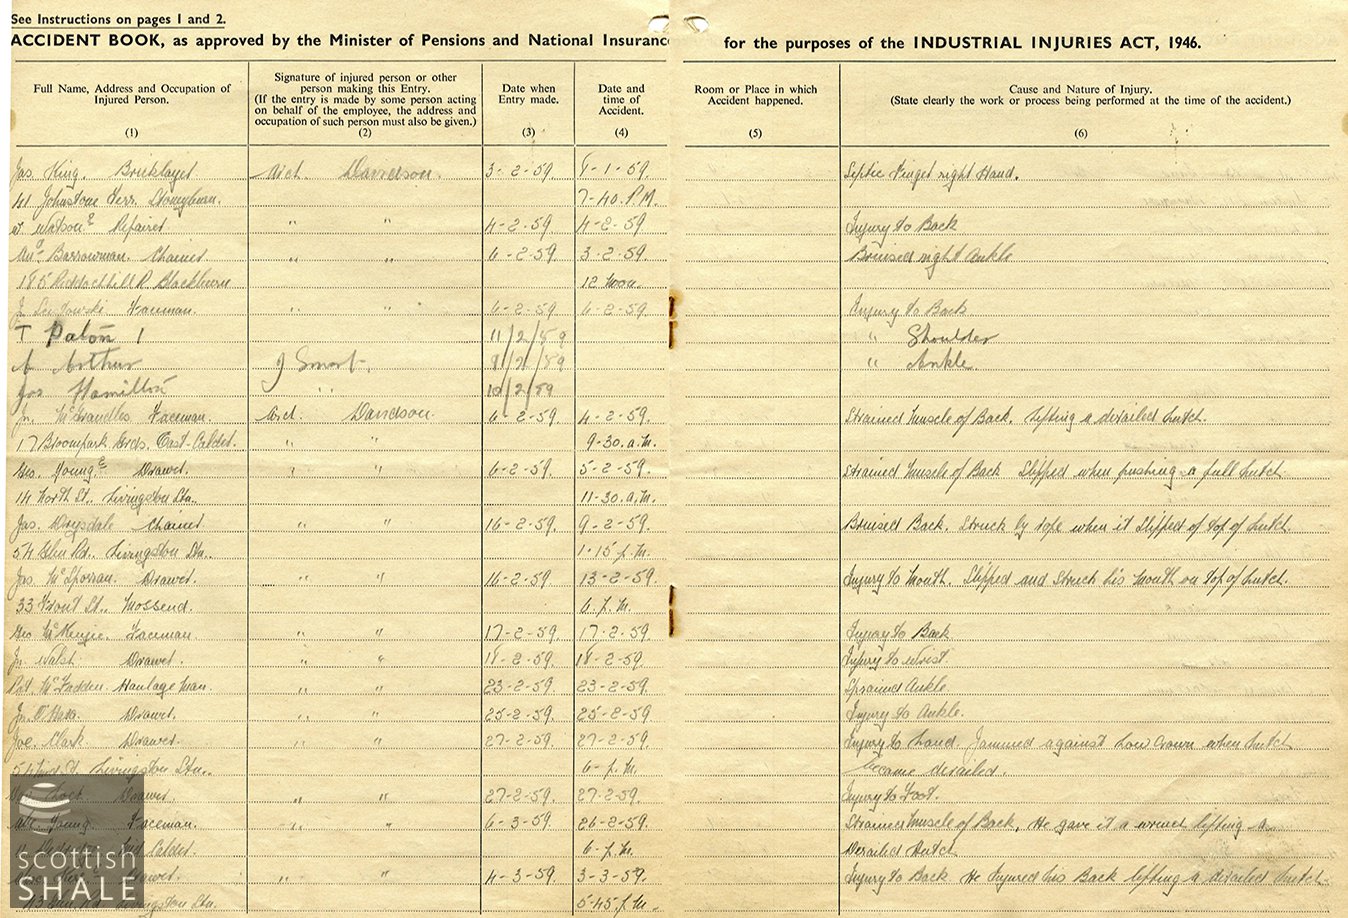 See Instructions on pages 1 and 2.
ACCIDENT BOOK, as approved by the Minister of Pensions and National Insurance for the purposes of the INDUSTRIAL INJURIES ACT, 1946.
Full Name, Address and Occupation of Injured Person. (1)
Signature of injured person or other person making this Entry. (If the entry is made by some person acting on behalf of the employee, the address and occupation of such person must also be given.) (2)
Date when Entry made. (3)
Date and time of Accident. (4)
Room or Place in which Accident happened. (5)
Cause and Nature of Injury. (State clearly the work or process being performed at the time of the accident.) (6)
Jas. King. Bricklayer Arch. Davidson. 3-2-59. 9-1-59. Septic Finger right Hand.
41 Johnstone Terr. Stoneyburn. 7-40. P.M.
W Watson Repairer " " 4-2-59. 4-2-59 Injury to Back
Barrowman. Chainer " " 6-2-59. 3-2-59. Bruised right Ankle
185 Riddochhill R. Blackburn 12 Noon.
J. Faceman. " " 6-2-59 6-2-59. Injury to Back
T Paton 1 11/2/59 " Shoulder
A Arthur J Smart. 9/2/59 " Ankle.
Jas Hamilton " " 10/2/59
Jn. McCrandles Faceman. Arch. Davidson. 6-2-59. 4-2-59. Strained Muscle of Back. Lifting a derailed hutch.
17 Broompark Crds. East-Calder. " " 9-30. a.m.
Geo. Young Drawer. " " 6-2-59. 5-2-59. Strained Muscle of Back Slipped when pushing a full hutch
14 North St. Livingston Stn. 11-30. a.m.
Jas. Drysdale Chainer " " 16-2-59. 9-2-59. Bruised Back. Struck by rope when it slipped of top of hutch.
54 Glen Rd. Livingston Stn. 1-15 p.m.
Jas. McSporran. Drawer. " " 16-2-59. 13-2-59. Injury to Mouth. Slipped and Struck his mouth on top of hutch.
33 Front St. Mossend. 6. p.m.
Geo McKenzie. Faceman. " " 17-2-59. 17-2-59. Injury to Back
Jn. Walsh Drawer. " " 18-2-59. 18-2-59. Injury to wrist.
Pat. McFadden. Haulage Man. " " 23-2-59. 23-2-59. Sprained Ankle.
Jn. O'Hara. Drawer. " " 25-2-59. 25-2-59 Injury to Ankle.
Joe. Clark. Drawer. " " 27-2-59. 27-2-59. Injury to hand. Jammed against low Crown when hutch
54 Livingston Stn. 6- p.m. became derailed.
Drawer. " " 27-2-59. 27-2-59. Injury to Foot.
Young. Faceman. " " 6-3-59. 26-2-59. Strained Muscle of Back. He gave it a wrench lifting a
Calder. 6- p.m. Derailed Hutch
Drawer. " " 4-3-59. 3-3-59. Injury to Back He Injured his Back lifting a derailed hutch.
Livingston Stn. 5-45. p.m.
Scottish
SHALE